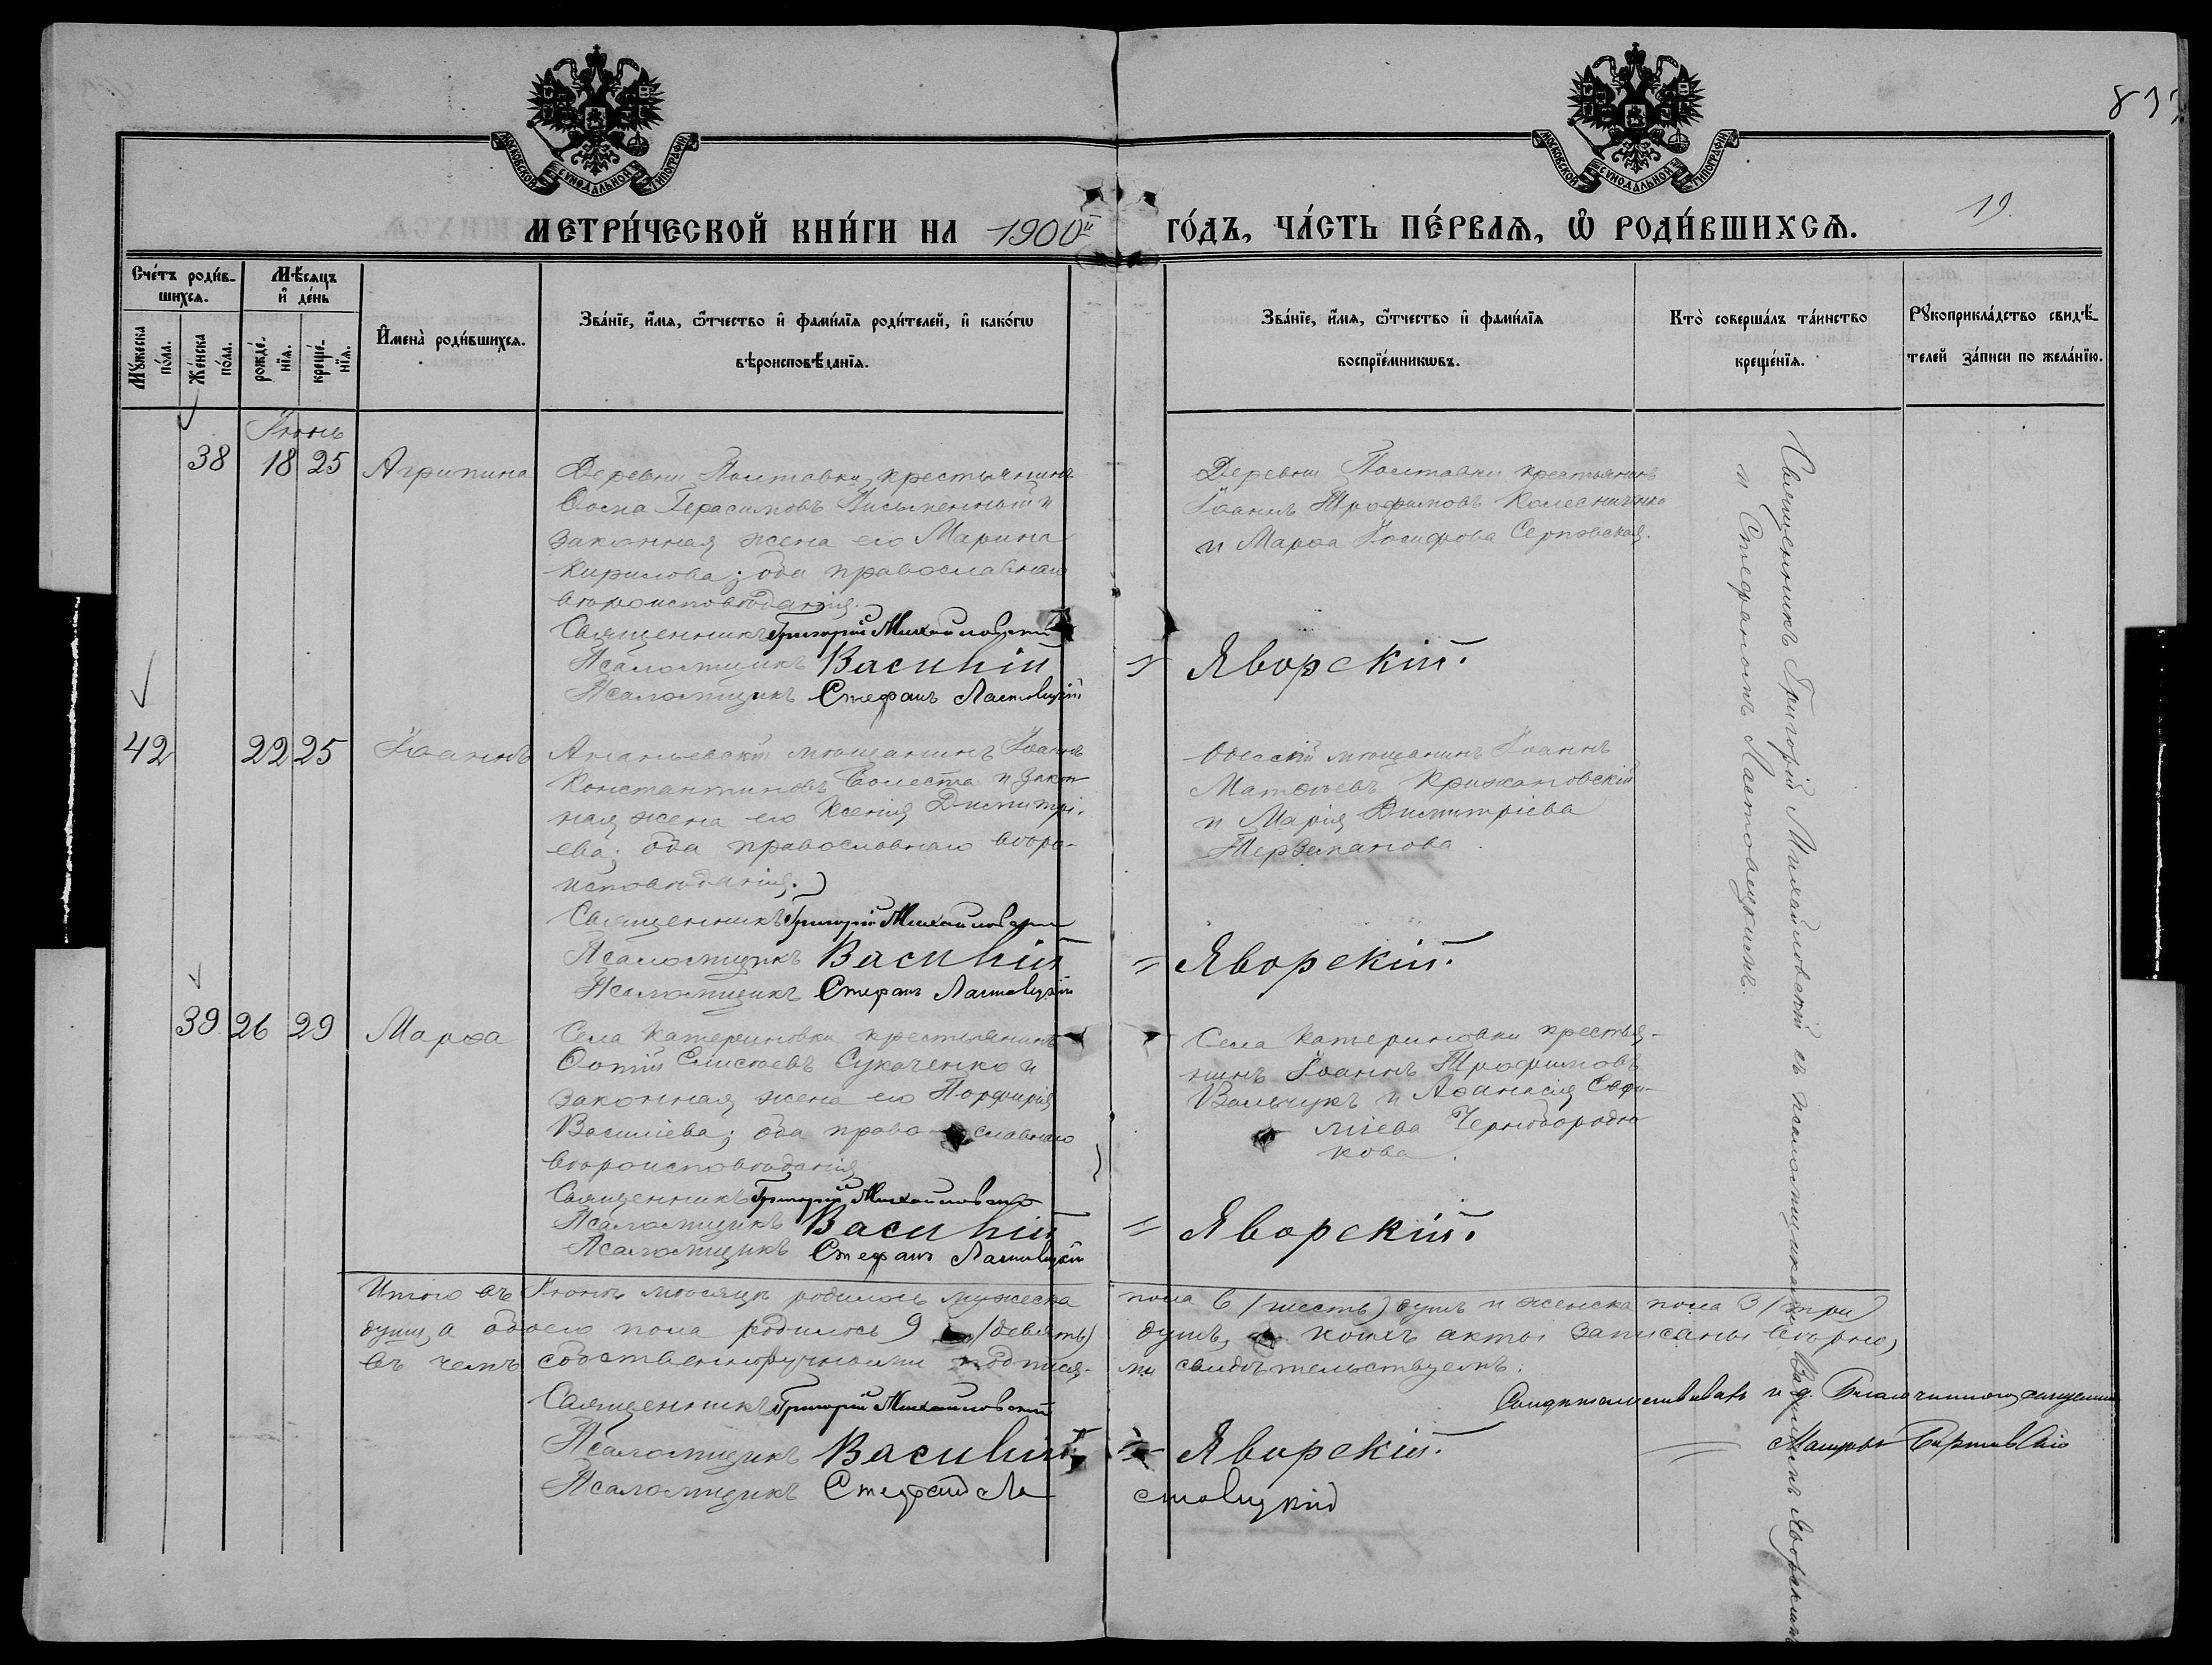 МОСКОВСКОЙ СУНОДАЛЬНОЙ ТИПОГРАФІИ
МОСКОВСКОЙ СУНОДАЛЬНОЙ ТИПОГРАФІИ
19.
МЕТРИ́ЧЕСКОЙ КНИ́ГИ НА 1900й
ГО́ДЪ, ЧА́СТЬ ПЕ́РВАѦ, Ѡ РОДИ́ВШИХСѦ.
Сче́тъ роди́в-
шихсѧ.
Мꙋ́жеска по́ла.
Же́нска по́ла.
Мѣ́сѧцъ
и҆ де́нь
рожде́-
нїѧ.
креще́-
нїѧ.
И҆мена̀ роди́вшихсѧ.
Зва́нїе, и҆́мѧ, ѻ҆́тчество и҆ фами́лїѧ роди́телей, и҆ како́гѡ
вѣроисповѣ́данїѧ.
Зва́нїе, и҆́мѧ, ѻ҆́тчество и҆ фами́лїѧ
воспрїе́мникѡвъ.
Кто̀ соверша́лъ та́инство
креще́нїѧ.
Рꙋкоприкла́дство свидѣ́-
телей за́писи по жела́нїю.
Іюнь
38 18 25 Агрипина
Деревни Полтавки крестьянинъ
Ѳома Герасимовъ Письменный и
законная жена его Марина
Кирилова; оба православнаго
вѣроисповѣданія.
Священникъ Григорій Михайловскій
Псаломщикъ Василій
Псаломщикъ Стефанъ Ластовецкій
Деревни Полтавки крестьянинъ
Іоаннъ Трофимовъ Колесниченко
и Марѳа Іосифова Серповская.
Яворскій.
42 22 25 Іоаннъ
Ананьевскій мѣщанинъ Іоаннъ
Константиновъ Болеста и закон-
ная жена его Ксенія Димитрі-
ева; оба православнаго вѣро-
исповѣданія.
Священникъ Григорій Михайловскій
Псаломщикъ Василій
Псаломщикъ Стефанъ Ластовецкій
Одесскій мѣщанинъ Іоаннъ
Матѳѣевъ Крижановскій
и Марія Димитріева
Терземанова
Яворскій.
39 26 29 Марѳа
Села Катериновки крестьянинъ
Фотій Елисѣевъ Сукаченко и
законная жена его Порфирія
Василіева; оба православнаго
вѣроисповѣданія
Священникъ Григорій Михайловскій
Псаломщикъ Василій
Псаломщикъ Стефанъ Ластовецкій
Села Катериновки крестья-
нинъ Іоаннъ Трофимовъ
Вальчукъ и Аѳанасія Евфи-
міева Чернобородю-
кова.
Яворскій.
Священникъ Григорій Михайловскій съ псаломщиками Василіемъ Яворскимъ
и Стефаномъ Ластовецкимъ.
Итого въ Іюнѣ мѣсяцѣ родилось мужеска
пола 6 (шесть) душъ и женска пола 3 (три)
душъ, а обоего пола родилось 9 (девять)
душъ, коихъ акты записаны вѣрно,
въ чемъ собственноручными подпися-
ми свидѣтельствуемъ.
Священникъ Григорій Михайловскій
Псаломщикъ Василій
Яворскій.
Псаломщикъ Стефанъ Ла
стовецкій
Свидѣтельствовалъ и. д. Благочиннаго священникъ